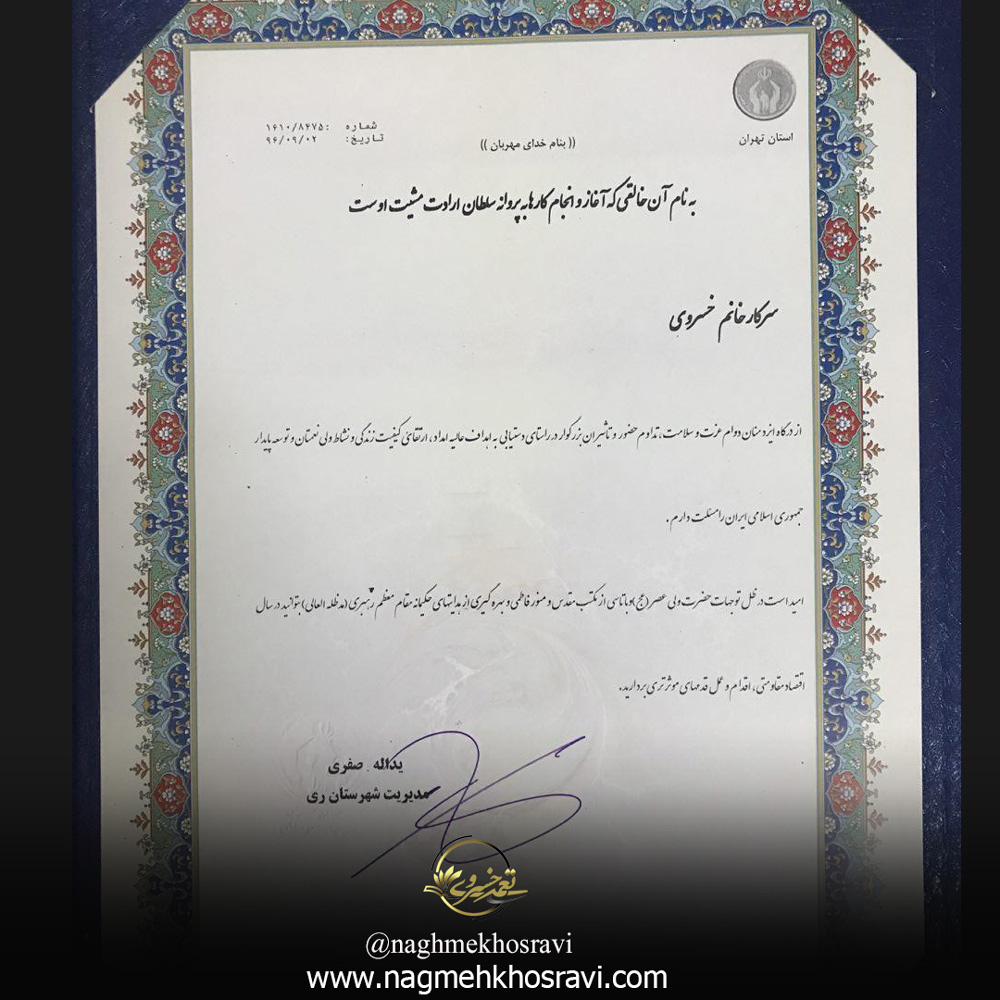 استان تهران
شماره : ۱۶۱۰/۸۴۷۵
تاریخ: ۹۶/۰۹/۰۲
(( بنام خدای مهربان ))
به نام آن خالقی که آغاز و انجام کارها به پروانه سلطان ارادت مشیت اوست
سرکار خانم خسروی
از درگاه ایزد منان دوام عزت و سلامت، تداوم حضور و تاثیر آن بزرگوار در راستای دستیابی به اهداف عالیه امداد، ارتقائ کیفیت زندگی و نشاط ولی نعمتان و توسعه پایدار
جمهوری اسلامی ایران را مسئلت دارم.
امید است در ظل توجهات حضرت ولی عصر (عج) و با تاسی از مکتب مقدس و منور فاطمی و بهره گیری از هدایتهای حکیمانه مقام معظم رهبری (مدظله العالی) بتوانید در سال
اقتصاد مقاومتی، اقدام و عمل قدمهای موثرتری بردارید.
یداله صفری
مدیریت شهرستان ری
نغمه خسروی
@naghmekhosravi
www.nagmehkhosravi.com